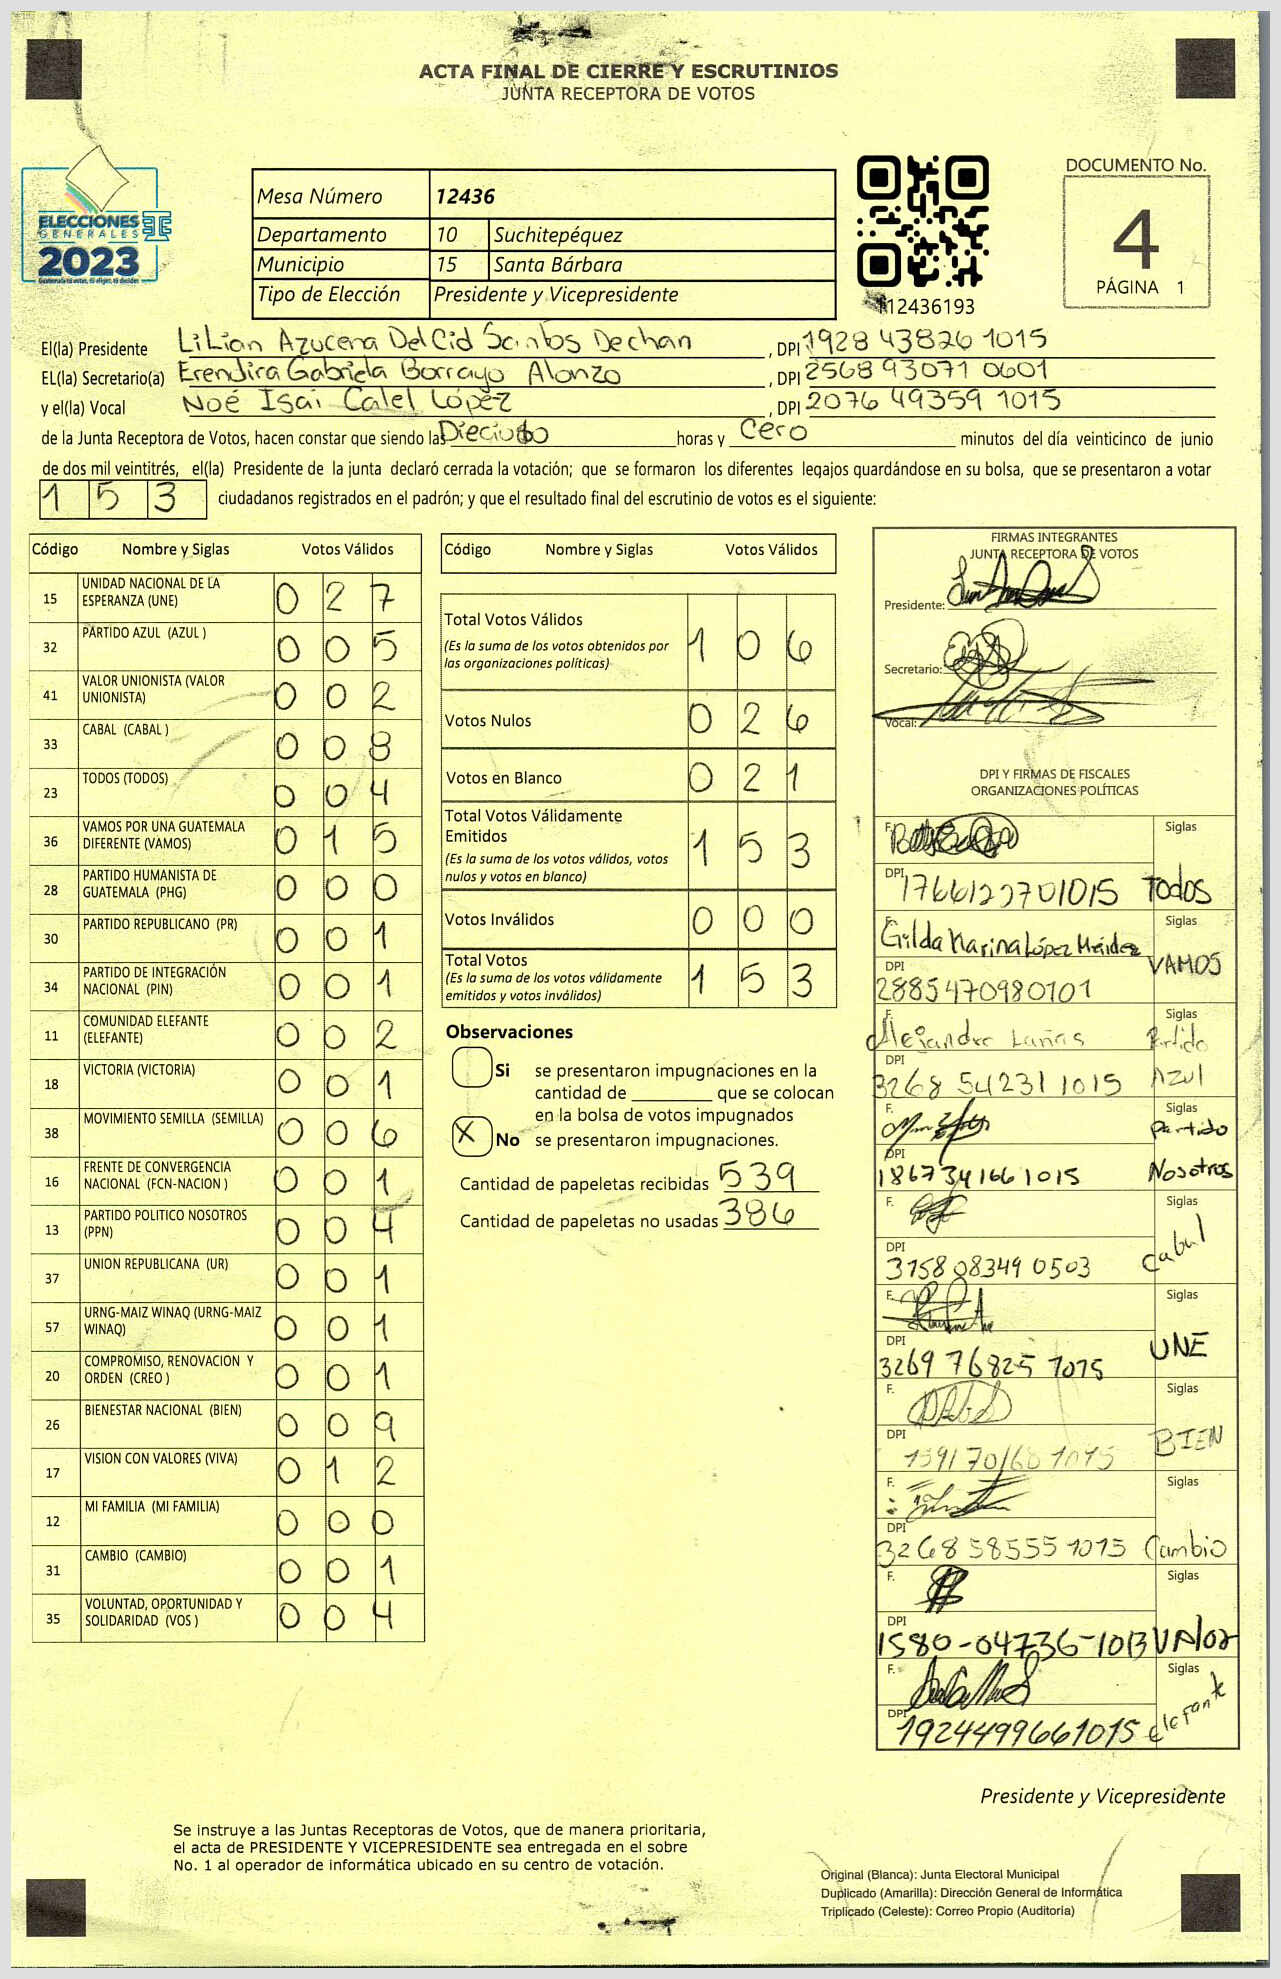 ACTA FINAL DE CIERRE Y ESCRUTINIOS
JUNTA RECEPTORA DE VOTOS
ELECCIONES
GENERALES
2023
Mesa Número 12436
Departamento 10 Suchitepéquez
Municipio 15 Santa Bárbara
Tipo de Elección Presidente y Vicepresidente
112436193
DOCUMENTO No.
4
PÁGINA 1
El(la) Presidente LiLian Azucena Del Cid Santos Dechan, DPI 1928 43826 1015
EL(la) Secretario(a) Erendira Gabriela Borrayo Alonzo, DPI 2568 93071 0601
y el(la) Vocal Noé Isai Calel López, DPI 2076 49359 1015
de la Junta Receptora de Votos, hacen constar que siendo las Dieciocho horas y Cero minutos del día veinticinco de junio
de dos mil veintitrés, el(la) Presidente de la junta declaró cerrada la votación; que se formaron los diferentes legajos quardándose en su bolsa, que se presentaron a votar
153 ciudadanos registrados en el padrón; y que el resultado final del escrutinio de votos es el siguiente:
Código Nombre y Siglas Votos Válidos
15 UNIDAD NACIONAL DE LA ESPERANZA (UNE) 027
32 PARTIDO AZUL (AZUL ) 005
41 VALOR UNIONISTA (VALOR UNIONISTA) 002
33 CABAL (CABAL ) 008
23 TODOS (TODOS) 004
36 VAMOS POR UNA GUATEMALA DIFERENTE (VAMOS) 015
28 PARTIDO HUMANISTA DE GUATEMALA (PHG) 000
30 PARTIDO REPUBLICANO (PR) 001
34 PARTIDO DE INTEGRACIÓN NACIONAL (PIN) 001
11 COMUNIDAD ELEFANTE (ELEFANTE) 002
18 VICTORIA (VICTORIA) 001
38 MOVIMIENTO SEMILLA (SEMILLA) 006
16 FRENTE DE CONVERGENCIA NACIONAL (FCN-NACION ) 001
13 PARTIDO POLITICO NOSOTROS (PPN) 004
37 UNION REPUBLICANA (UR) 001
57 URNG-MAIZ WINAQ (URNG-MAIZ WINAQ) 001
20 COMPROMISO, RENOVACION Y ORDEN (CREO ) 001
26 BIENESTAR NACIONAL (BIEN) 009
17 VISION CON VALORES (VIVA) 012
12 MI FAMILIA (MI FAMILIA) 000
31 CAMBIO (CAMBIO) 001
35 VOLUNTAD, OPORTUNIDAD Y SOLIDARIDAD (VOS ) 004
Código Nombre y Siglas Votos Válidos
Total Votos Válidos 106
(Es la suma de los votos obtenidos por
las organizaciones políticas)
Votos Nulos 026
Votos en Blanco 021
Total Votos Válidamente
Emitidos 153
(Es la suma de los votos válidos, votos
nulos y votos en blanco)
Votos Inválidos 000
Total Votos 153
(Es la suma de los votos válidamente
emitidos y votos inválidos)
Observaciones
Si se presentaron impugnaciones en la
cantidad de ________ que se colocan
en la bolsa de votos impugnados
X No se presentaron impugnaciones.
Cantidad de papeletas recibidas 539
Cantidad de papeletas no usadas 386
FIRMAS INTEGRANTES
JUNTA RECEPTORA DE VOTOS
Presidente:
Secretario:
Vocal:
DPI Y FIRMAS DE FISCALES
ORGANIZACIONES POLÍTICAS
F. Siglas
DPI Todos
F. Gilda Karina López Méndez Siglas
DPI 2885470980101 VAMOS
F. Alejandro Siglas Partido
DPI 3268 54231 1015 Azul
F. Siglas Partido
DPI 1867341661015 Nosotros
F. Siglas
DPI 3158 08349 0503 Cabal
F. Siglas
DPI 3269 76825 1015 UNE
F. Siglas
DPI BIEN
F. Siglas
DPI 3268 58555 1015 Cambio
F. Siglas
DPI 1580-04736-1013 VAlor
F. Siglas
DPI 1924499661015 elefante
Presidente y Vicepresidente
Se instruye a las Juntas Receptoras de Votos, que de manera prioritaria,
el acta de PRESIDENTE Y VICEPRESIDENTE sea entregada en el sobre
No. 1 al operador de informática ubicado en su centro de votación.
Original (Blanca): Junta Electoral Municipal
Duplicado (Amarilla): Dirección General de Informática
Triplicado (Celeste): Correo Propio (Auditoría)